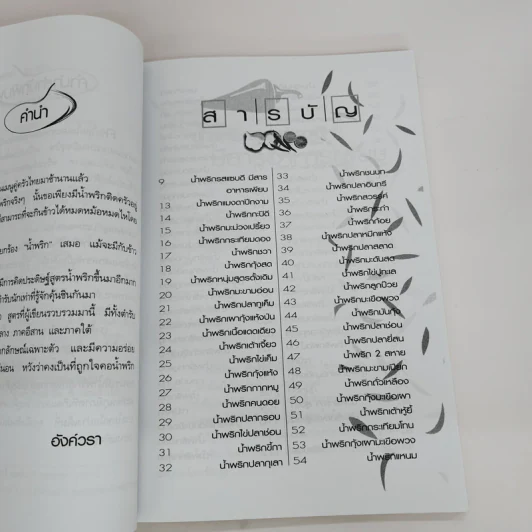 คำนำ
นเมนูคู่ครัวไทยมาช้านานแล้ว
พริกจริงๆ นั้นขอเพียงมีน้ำพริกติดครัวอยู่
สามารถที่จะกินข้าวได้หมดหม้อหมดไหโดย
ยกร้อง "น้ำพริก" เสมอ แม้จะมีกับข้าว
มีการคิดประดิษฐ์สูตรน้ำพริกขึ้นมาอีกมาก
ำรับนักเท่าที่รู้จักคุ้นชินกันมา
สูตรที่ผู้เขียนรวบรวมมานี้ มีทั้งตำรับ
ลาง ภาคอีสาน และภาคใต้
อกลักษณ์เฉพาะตัว และมีความอร่อย
น่นอน หวังว่าคงเป็นที่ถูกใจคอน้ำพริก
อังศ์วรา
สารบัญ
9 น้ำพริกรสแซบดี มีสาร
อาหารเพียบ
13 น้ำพริกแมงดาปีกงาม
14 น้ำพริกกะปิดี
15 น้ำพริกมะม่วงเปรี้ยว
16 น้ำพริกกระเทียมดอง
17 น้ำพริกเงาะ
18 น้ำพริกกุ้งสด
19 น้ำพริกหนุ่มสูตรดั้งเดิม
20 น้ำพริกมะขามอ่อน
21 น้ำพริกปลาทูเค็ม
22 น้ำพริกเผากุ้งแห้งป่น
23 น้ำพริกเนื้อแดดเดียว
24 น้ำพริกเต้าเจี้ยว
25 น้ำพริกไข่เค็ม
26 น้ำพริกกุ้งแห้ง
27 น้ำพริกกากหมู
28 น้ำพริกคนดอย
29 น้ำพริกปลากรอบ
30 น้ำพริกไข่ปลาช่อน
31 น้ำพริกขี้กา
32 น้ำพริกปลากุเลา
33 น้ำพริกชนบท
34 น้ำพริกปลาอินทรี
35 น้ำพริกสวรรค์
36 น้ำพริกระกำ
37 น้ำพริกก้อย
38 น้ำพริกปลาหมึกแห้ง
39 น้ำพริกปลาสลาด
40 น้ำพริกมะดันสด
41 น้ำพริกไข่ปูทะเล
42 น้ำพริกลูกป๋วย
43 น้ำพริกมะเขือพวง
44 น้ำพริกมันกุ้ง
45 น้ำพริกปลาช่อน
46 น้ำพริกปลายี่สน
47 น้ำพริก 2 สหาย
48 น้ำพริกมะขามเปียก
49 น้ำพริกถั่วเหลือง
50 น้ำพริกกุ้งมะเขือเผา
51 น้ำพริกเต้าหู้ยี้
52 น้ำพริกกระเทียมโทน
53 น้ำพริกกุ้งเผามะเขือพวง
54 น้ำพริกแหนม